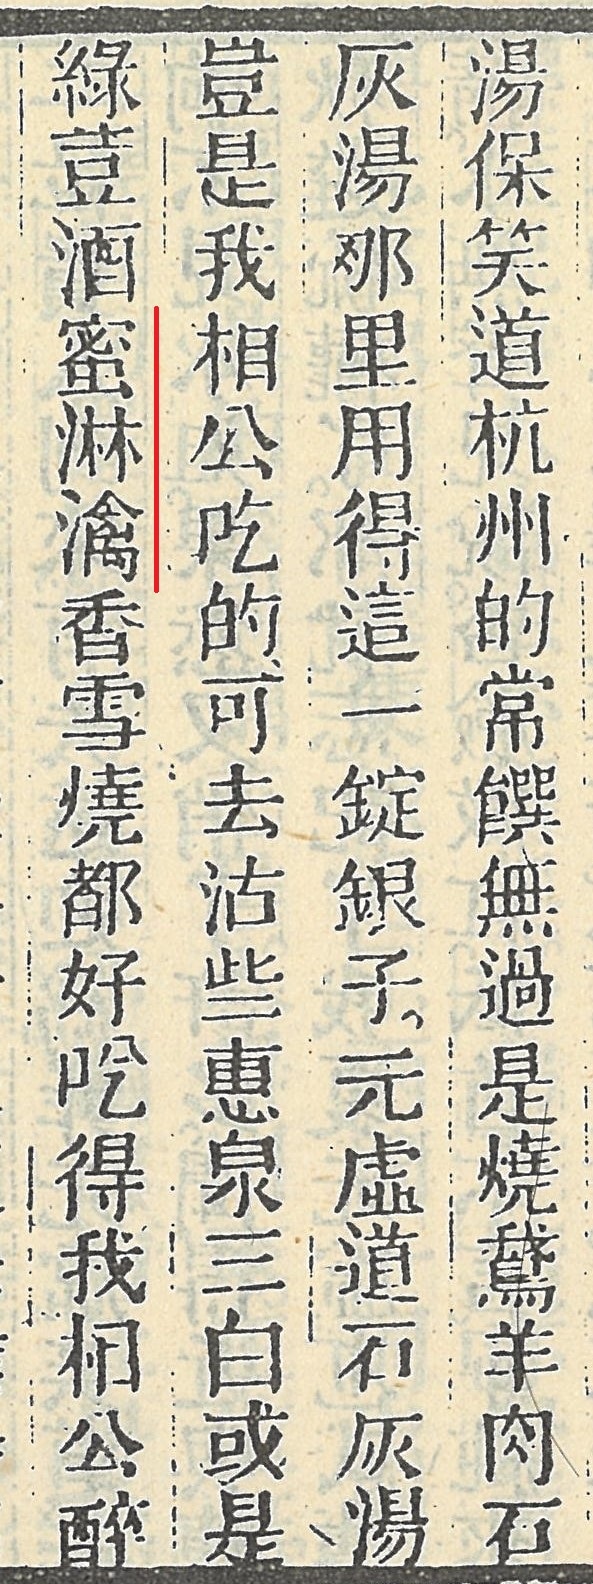 湯保笑道杭州的常饌無過是燒鵞羊肉石
灰湯那里用得這一錠銀子。元虛道石灰湯
豈是我相公吃的可去沽些惠泉三白或是
綠荳酒蜜淋漓香雪燒都好吃得我相公醉